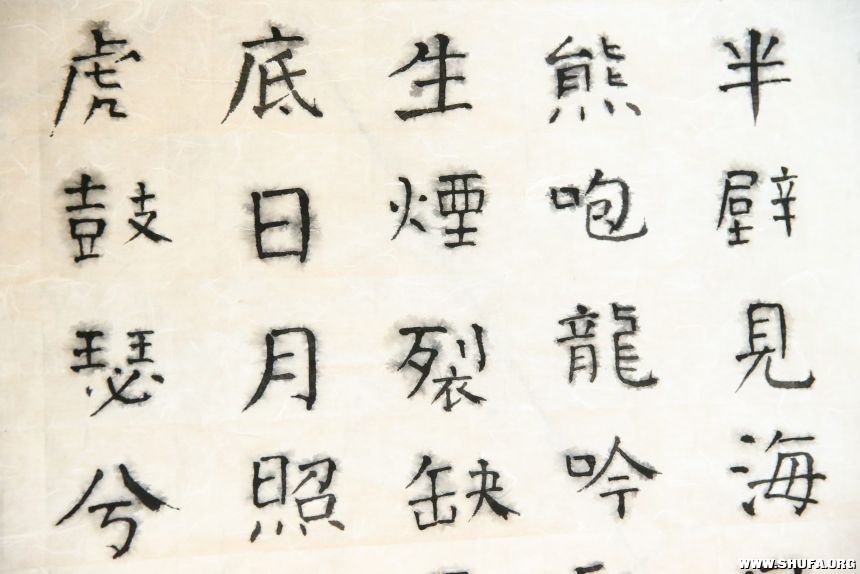 半壁見海
熊咆龍吟
生煙裂缺
底日月照
虎鼓瑟兮
WWW.SHUFA.ORG